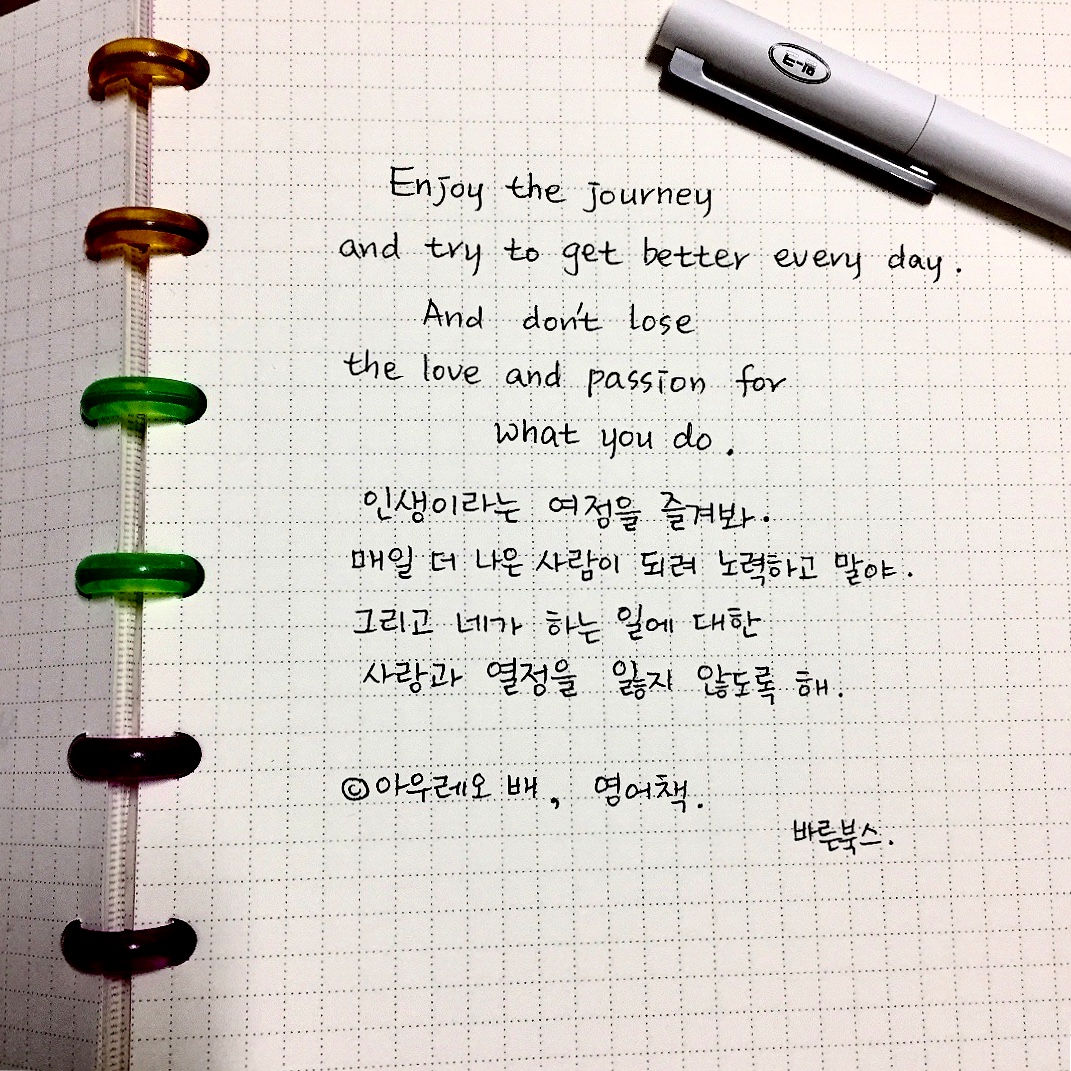 Enjoy the journey
and try to get better every day.
And don't lose
the love and passion for
what you do.
인생이라는 여정을 즐겨봐.
매일 더 나은 사람이 되려 노력하고 말야.
그리고 네가 하는 일에 대한
사랑과 열정을 잃지 않도록 해.
©아우레오 배, 영어책.
바른북스.